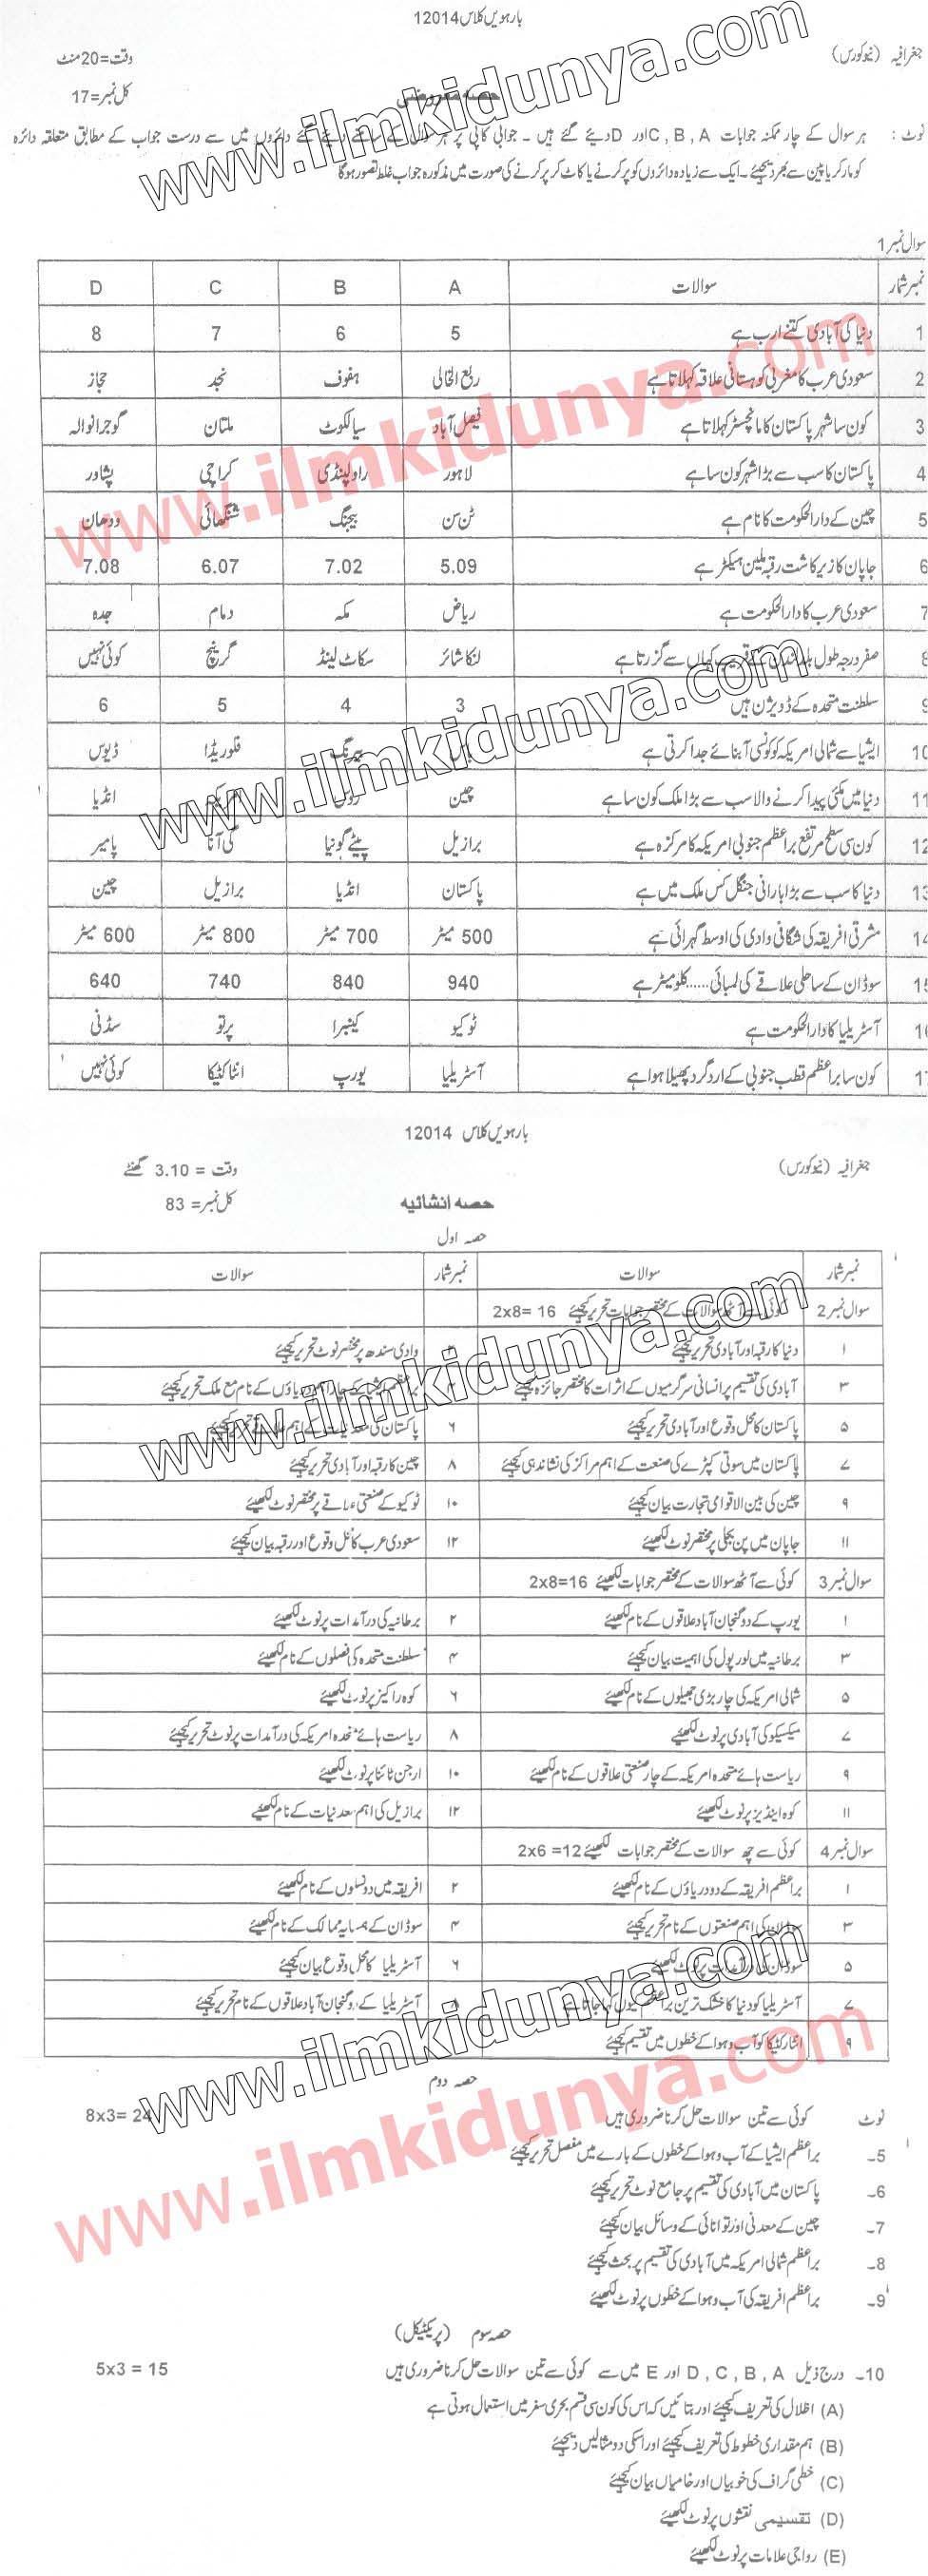 بارہویں کلاس 12014
جغرافیہ (نیوکورس) وقت=20منٹ
حصہ معروضی کل نمبر=17
نوٹ : ہر سوال کے چار ممکنہ جوابات C , B , A اور D دیئے گئے ہیں ۔ جوابی کاپی پر ہر سوال کے سامنے دیئے گئے دائروں میں سے درست جواب کے مطابق متعلقہ دائرہ
کو مارکر یا پین سے بھر دیجیئے ۔ ایک سے زیادہ دائروں کو پر کرنے یا کاٹ کر پر کرنے کی صورت میں مذکورہ جواب غلط تصور ہوگا
سوال نمبر 1
نمبر شمار سوالات A B C D
1 دنیا کی آبادی کتنے ارب ہے 5 6 7 8
2 سعودی عرب کا مغربی کوہستانی علاقہ کہلاتا ہے ربع الخالی ہفوف نجد حجاز
3 کون سا شہر پاکستان کا مانچسٹر کہلاتا ہے فیصل آباد سیالکوٹ ملتان گوجرانوالہ
4 پاکستان کا سب سے بڑا شہر کون سا ہے لاہور راولپنڈی کراچی پشاور
5 چین کے دارالحکومت کا نام ہے ٹن سن بیجنگ شنگھائی ووھان
6 جاپان کا زیر کاشت رقبہ ملین ہیکٹر ہے 5.09 7.02 6.07 7.08
7 سعودی عرب کا دارالحکومت ہے ریاض مکہ دمام جدہ
8 صفر درجہ طول بلد لندن کے قریب کہاں سے گزرتا ہے لنکا شائر سکاٹ لینڈ گرینچ کوئی نہیں
9 سلطنت متحدہ کے ڈویژن ہیں 3 4 5 6
10 ایشیا سے شمالی امریکہ کو کونسی آبنائے جدا کرتی ہے بیرنگ فلوریڈا ڈیوس
11 دنیا میں مکئی پیدا کرنے والا سب سے بڑا ملک کون سا ہے چین روس امریکہ انڈیا
12 کون سی سطح مرتفع براعظم جنوبی امریکہ کا مرکز ہ ہے برازیل پیٹے گونیا گی آنا پامیر
13 دنیا کا سب سے بڑا بارانی جنگل کس ملک میں ہے پاکستان انڈیا برازیل چین
14 مشرقی افریقہ کی شگافی وادی کی اوسط گہرائی ہے 500 میٹر 700 میٹر 800 میٹر 600 میٹر
15 سوڈان کے ساحلی علاقے کی لمبائی......کلومیٹر ہے 940 840 740 640
16 آسٹریلیا کا دارالحکومت ہے ٹوکیو کینبرا پرتو سڈنی
17 کون سا براعظم قطب جنوبی کے اردگرد پھیلا ہوا ہے آسٹریلیا یورپ انٹارکٹیکا کوئی نہیں
بارہویں کلاس 12014
جغرافیہ (نیوکورس) وقت = 3.10 گھنٹے
حصہ انشائیہ کل نمبر= 83
حصہ اول
نمبر شمار سوالات نمبر شمار سوالات
سوال نمبر 2 کوئی سے آٹھ سوالات کے مختصر جوابات تحریر کیجیئے 2x8= 16
۱ دنیا کا رقبہ اور آبادی تحریر کیجیئے ۲ وادی سندھ پر مختصر نوٹ تحریر کیجیئے
۳ آبادی کی تقسیم پر انسانی سرگرمیوں کے اثرات کا مختصر جائزہ کیجیئے ۴ براعظم ایشیا کے چار دریاؤں کے نام مع ملک تحریر کیجیئے
۵ پاکستان کا محل وقوع اور آبادی تحریر کیجیئے ۶ پاکستان کی معدنیات کے اہم علاقے تحریر کیجیئے
۷ پاکستان میں سوتی کپڑے کی صنعت کے اہم مراکز کی نشاندہی کیجیئے ۸ چین کا رقبہ اور آبادی تحریر کیجیئے
۹ چین کی بین الاقوامی تجارت بیان کیجیئے ۱۰ ٹوکیو کے صنعتی علاقے پر مختصر نوٹ لکھیئے
۱۱ جاپان میں پن بجلی پر مختصر نوٹ لکھیئے ۱۲ سعودی عرب کا محل وقوع اور رقبہ بیان کیجیئے
سوال نمبر 3 کوئی سے آٹھ سوالات کے مختصر جوابات لکھیئے 2x8=16
۱ یورپ کے دو گنجان آباد علاقوں کے نام لکھیئے ۲ برطانیہ کی درآمدات پر نوٹ لکھیئے
۳ برطانیہ میں لور پول کی اہمیت بیان کیجیئے ۴ سلطنت متحدہ کی فصلوں کے نام لکھیئے
۵ شمالی امریکہ کی چار بڑی جھیلوں کے نام لکھیئے ۶ کوہ راکیز پر نوٹ لکھیئے
۷ میکسیکو کی آبادی پر نوٹ لکھیئے ۸ ریاست ہائے متحدہ امریکہ کی درآمدات پر نوٹ تحریر کیجیئے
۹ ریاست ہائے متحدہ امریکہ کے چار صنعتی علاقوں کے نام لکھیئے ۱۰ ارجن ٹائنا پر نوٹ لکھیئے
۱۱ کوہ اینڈیز پر نوٹ لکھیئے ۱۲ برازیل کی اہم معدنیات کے نام لکھیئے
سوال نمبر 4 کوئی سے چھ سوالات کے مختصر جوابات لکھیئے 2x6 =12
۱ براعظم افریقہ کے دو دریاؤں کے نام لکھیئے ۲ افریقہ میں دو نسلوں کے نام لکھیئے
۳ سوڈان کی اہم صنعتوں کے نام تحریر کیجیئے ۴ سوڈان کے ہمسایہ ممالک کے نام لکھیئے
۵ سوڈان کی درآمدات پر نوٹ لکھیئے ۶ آسٹریلیا کا محل وقوع بیان کیجیئے
۷ آسٹریلیا کو دنیا کا خشک ترین براعظم کیوں کہا جاتا ہے ۸ آسٹریلیا کے دو گنجان آباد علاقوں کے نام تحریر کیجیئے
۹ انٹارکٹیکا کو آب و ہوا کے خطوں میں تقسیم کیجیئے
حصہ دوم
نوٹ کوئی سے تین سوالات حل کرنا ضروری ہیں 8x3= 24
5۔ براعظم ایشیا کے آب و ہوا کے خطوں کے بارے میں مفصل تحریر کیجیئے
6۔ پاکستان میں آبادی کی تقسیم پر جامع نوٹ تحریر کیجیئے
7۔ چین کے معدنی اور توانائی کے وسائل بیان کیجیئے
8۔ براعظم شمالی امریکہ میں آبادی کی تقسیم پر بحث کیجیئے
9۔ براعظم افریقہ کی آب و ہوا کے خطوں پر نوٹ لکھیئے
حصہ سوم (پریکٹیکل)
10۔ درج ذیل D , C , B , A اور E میں سے کوئی سے تین سوالات حل کرنا ضروری ہیں 5x3 = 15
(A) اظلال کی تعریف کیجیئے اور بتائیں کہ اس کی کون سی قسم بحری سفر میں استعمال ہوتی ہے
(B) ہم مقداری خطوط کی تعریف کیجیئے اور اسکی دو مثالیں دیجیئے
(C) خطی گراف کی خوبیاں اور خامیاں بیان کیجیئے
(D) تقسیمی نقشوں پر نوٹ لکھیئے
(E) رواجی علامات پر نوٹ لکھیئے
www.ilmkidunya.com
www.ilmkidunya.com
www.ilmkidunya.com
www.ilmkidunya.com
www.ilmkidunya.com
www.ilmkidunya.com